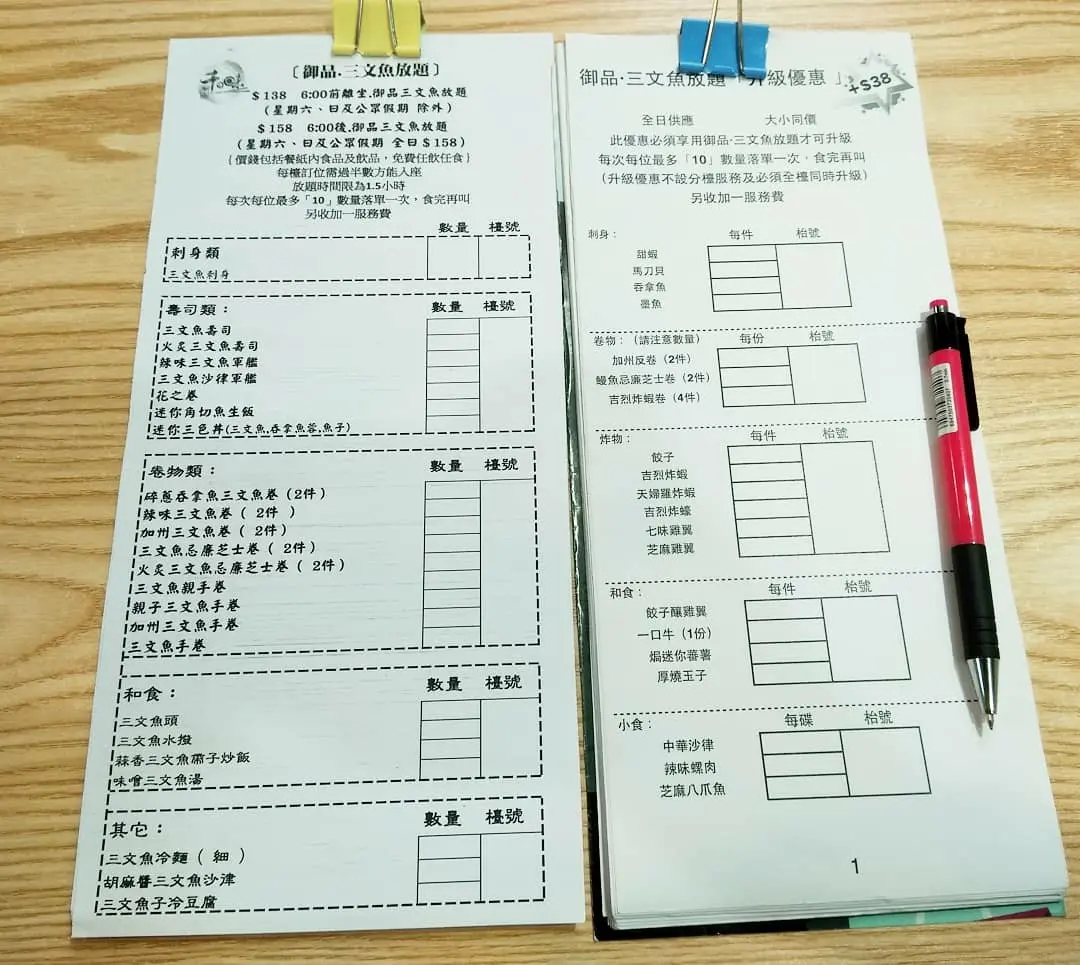 〔御品.三文魚放題〕
$138 6:00前離坐.御品三文魚放題
(星期六、日及公眾假期 除外)
$158 6:00後.御品三文魚放題
(星期六、日及公眾假期 全日$158)
{價錢包括餐紙內食品及飲品，免費任飲任食}
每檯訂位需過半數方能入座
放題時間限為1.5小時
每次每位最多「10」數量落單一次，食完再叫
另收加一服務費
數量 檯號
刺身類
三文魚刺身
壽司類： 數量 檯號
三文魚壽司
火炙三文魚壽司
辣味三文魚軍艦
三文魚沙律軍艦
花之卷
迷你角切魚生飯
迷你三色丼(三文魚,吞拿魚蓉,魚子)
卷物類： 數量 檯號
碎蔥吞拿魚三文魚卷（2件）
辣味三文魚卷（ 2件 ）
加州三文魚卷（ 2件）
三文魚忌廉芝士卷（ 2件）
火炙三文魚忌廉芝士卷（ 2件）
三文魚親手卷
親子三文魚手卷
加州三文魚手卷
三文魚手卷
和食： 數量 檯號
三文魚頭
三文魚水撥
蒜香三文魚帶子炒飯
味噌三文魚湯
其它： 數量 檯號
三文魚冷麵（ 細 ）
胡麻醬三文魚沙律
三文魚子冷豆腐
御品·三文魚放題「升級優惠」
+$38
全日供應 大小同價
此優惠必須享用御品·三文魚放題才可升級
每次每位最多「10」數量落單一次，食完再叫
(升級優惠不設分檯服務及必須全檯同時升級)
另收加一服務費
刺身： 每件 枱號
甜蝦
馬刀貝
吞拿魚
墨魚
卷物：(請注意數量) 每份 枱號
加州反卷（2件）
鰻魚忌廉芝士卷（2件）
吉烈炸蝦卷（4件）
炸物： 每件 枱號
餃子
吉烈炸蝦
天婦羅炸蝦
吉烈炸蠔
七味雞翼
芝麻雞翼
和食： 每件 枱號
餃子釀雞翼
一口牛（1份）
焗迷你蕃薯
厚燒玉子
小食： 每碟 枱號
中華沙律
辣味螺肉
芝麻八爪魚
1